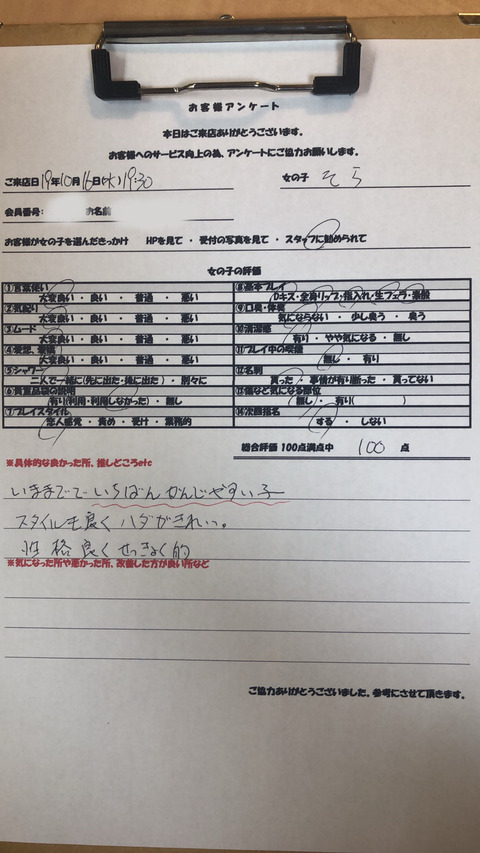 お客様アンケート
本日はご来店ありがとうございます。
お客様へのサービス向上の為、アンケートにご協力お願いします。
ご来店日 19年10月16日(水) 19:30 女の子 そら
会員番号: お名前
お客様が女の子を選んだきっかけ HPを見て ・ 受付の写真を見て ・ スタッフに勧められて
女の子の評価
①言葉使い
大変良い ・ 良い ・ 普通 ・ 悪い
②気配り
大変良い ・ 良い ・ 普通 ・ 悪い
③ムード
大変良い ・ 良い ・ 普通 ・ 悪い
④愛想、愛嬌
大変良い ・ 良い ・ 普通 ・ 悪い
⑤シャワー
二人で一緒に(先に出た・後に出た) ・ 別々に
⑥貴重品袋の説明
有り(利用・利用しなかった) ・ 無し
⑦プレイスタイル
恋人感覚 ・ 責め ・ 受け ・ 業務的
⑧基本プレイ
Dキス・全身リップ・指入れ・生フェラ・素股
⑨口臭・体臭
気にならない ・ 少し臭う ・ 臭う
⑩清潔感
有り ・ やや気になる ・ 無し
⑪プレイ中の喫煙
無し ・ 有り
⑫名刺
貰った ・ 事情が有り断った ・ 貰ってない
⑬傷など気になる部位
(無し ・ 有り( )
⑭次回指名
する ・ しない
総合評価 100点満点中 100 点
※具体的な良かった所、推しどころetc
いままででいちばんかんじやすい子
スタイルも良くハダがきれい。
性格良くせっきょく的
※気になった所や悪かった所、改善した方が良い所など
ご協力ありがとうございました。参考にさせて頂きます。